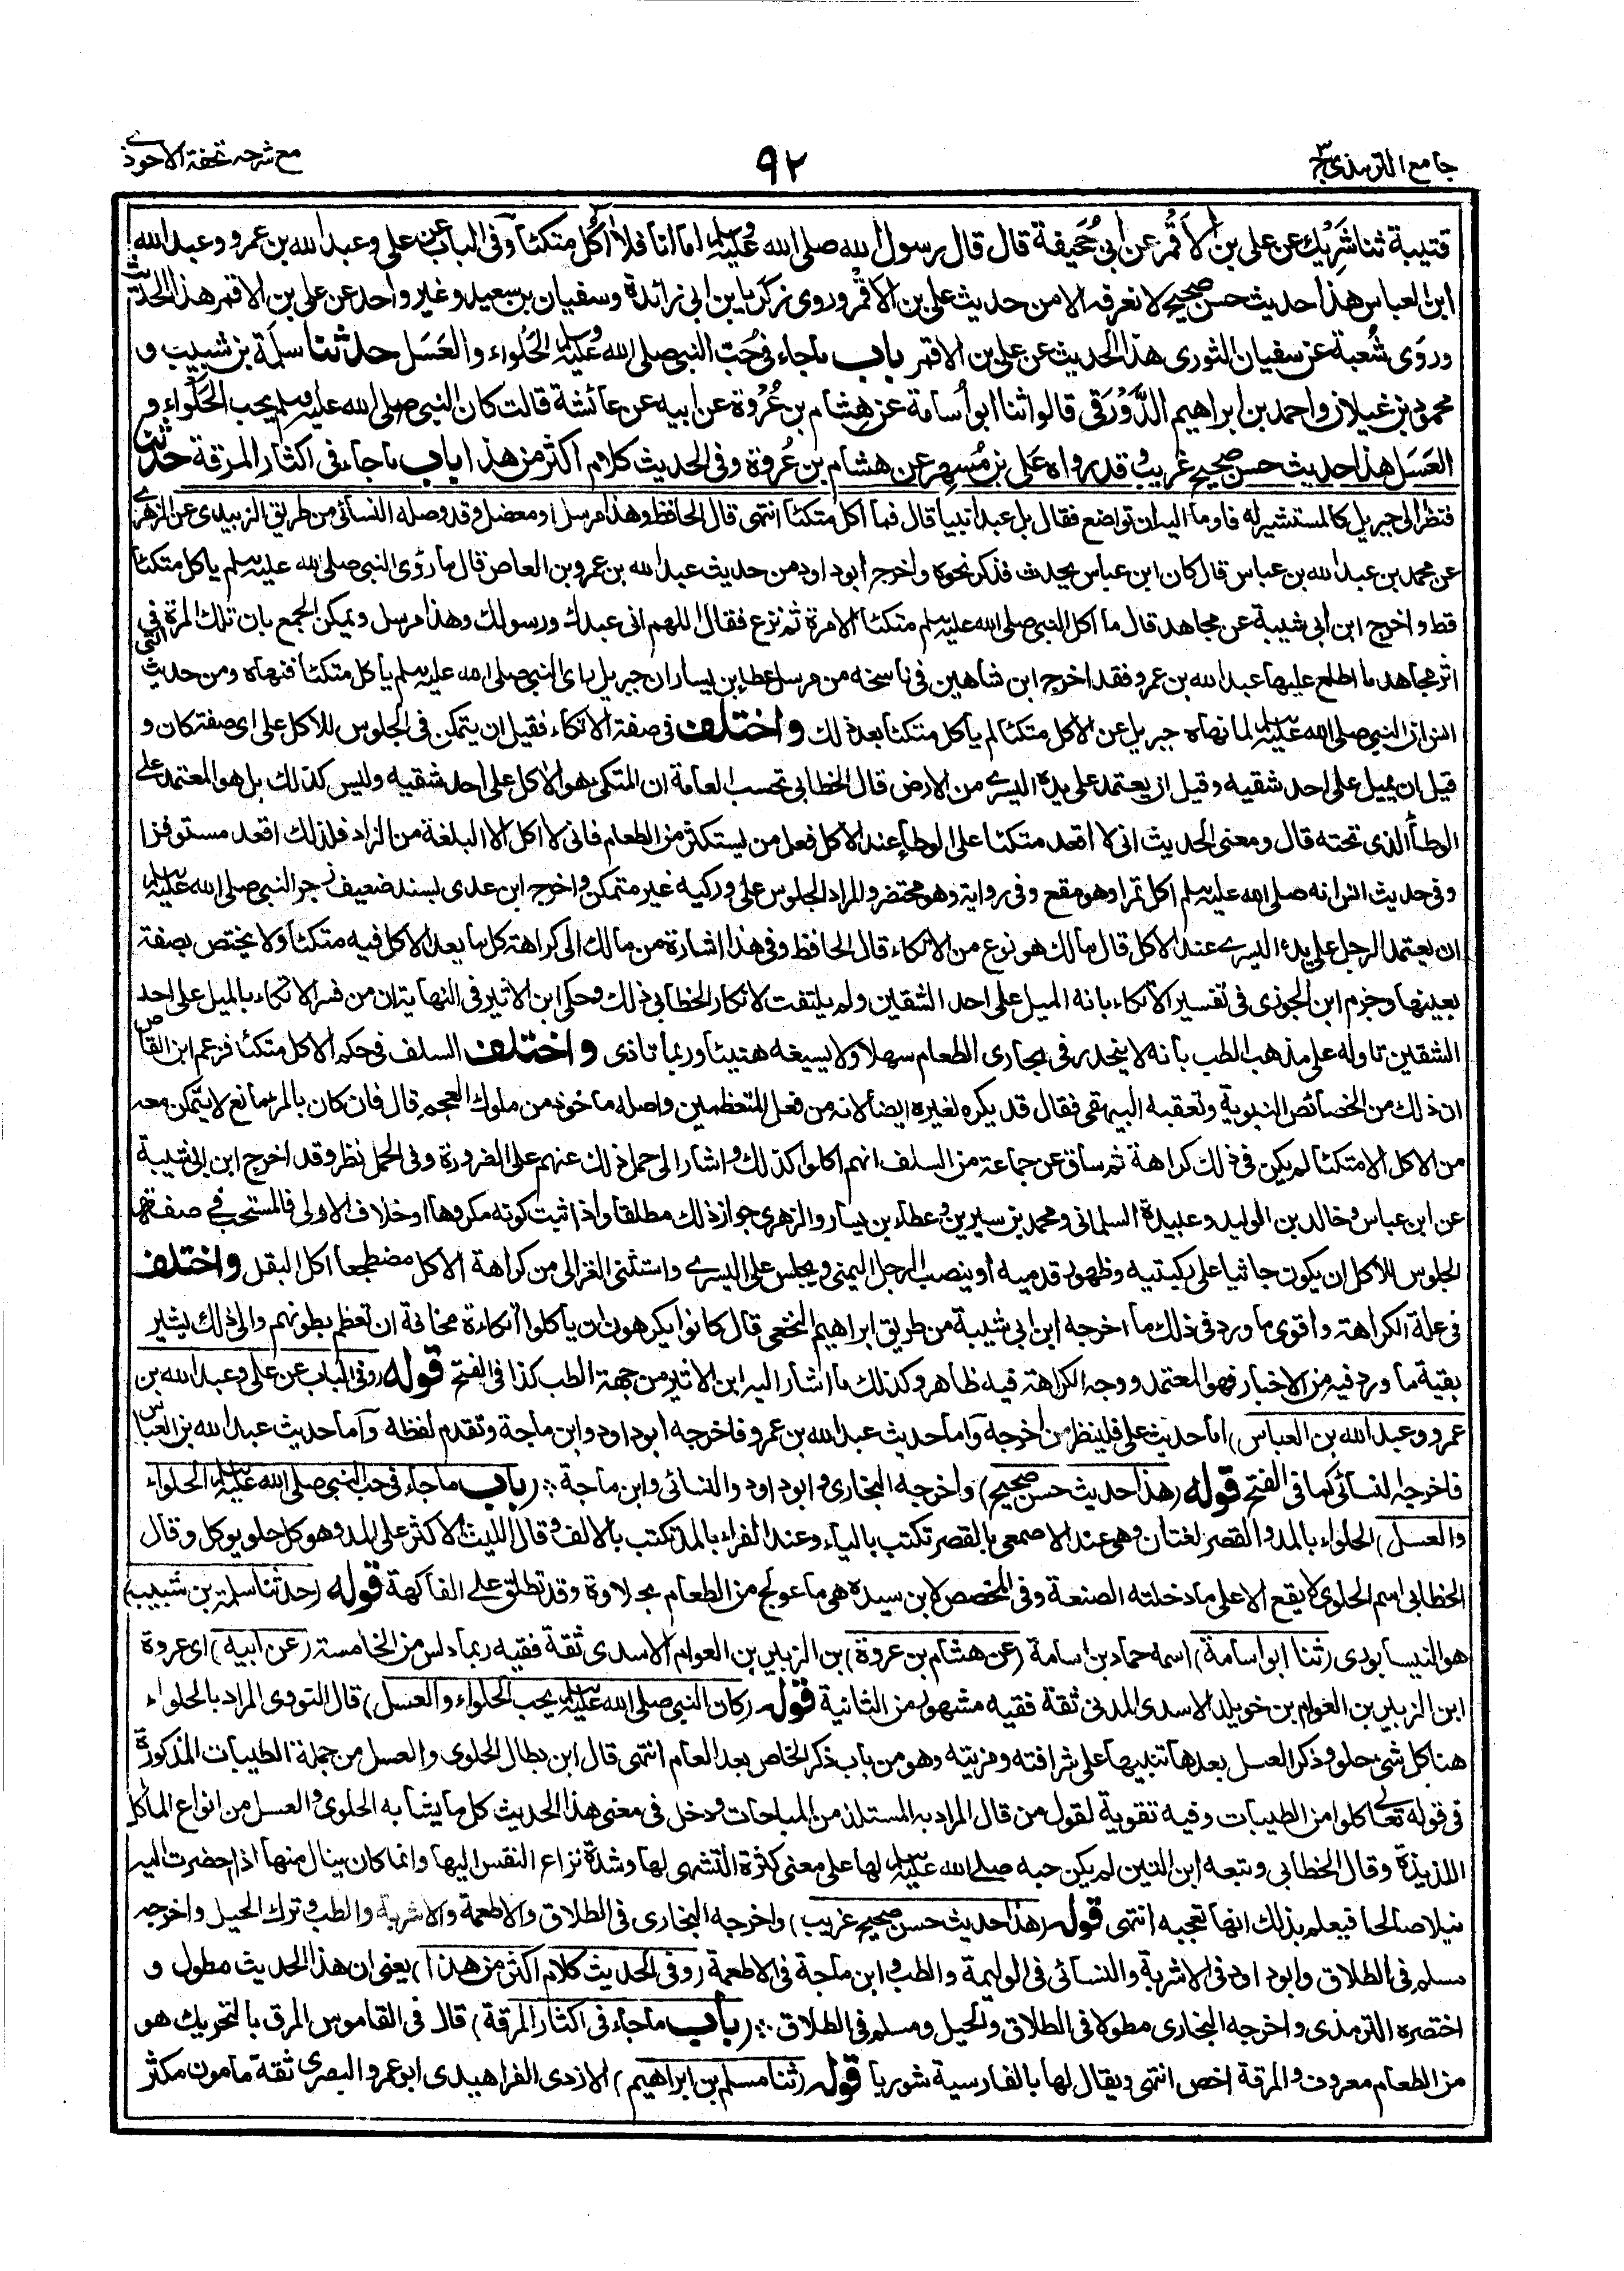 جامع الترمذي ج٣
٩٢
مع شرحه تحفة الاحوذي
قتيبة ثنا شَرِيْك عن علي بن الأَقْمر عن أبي جُحَيفة قال قال رسول الله صلى الله عليه وسلم اما انا فلا آكُل متكئاً وفي الباب عن علي وعبد الله بن عمرو وعبد الله
ابن العباس هذا حديث حسن صحيح لا نعرفه الا من حديث علي بن الأَقْمر وروى زكريا بن ابي زائدة وسفيان بن سعيد وغير واحد عن علي بن الاقمر هذا الحديث
وروَى شُعبة عن سفيان الثوري هذا الحديث عن علي بن الاقمر باب ماجاء في حُبّ النبي صلى الله عليه وسلم الحَلواء والعَسَل حدثنا سلَمة بن شَبيب و
محمود بن غيلان واحمد بن ابراهيم الدَّوْرَقي قالوا ثنا ابو أسامة عن هِشام بن عُرْوة عن ابيه عن عائشة قالت كان النبي صلى الله عليه وسلم يحب الحَلْواء و
العَسَل هذا حديث حسن صحيح غريب وقد رواه عَلي بن مُسهِر عن هشام بن عُروة وفي الحديث كلام اكثر من هذا باب ماجاء في اكثار المرقة حدثنا
فنظر الى جبريل كالمستشير له فاومأ اليه ان تواضع فقال بل عبدا نبيا قال فما اكل متكئاً انتهى قال الحافظ وهذا مرسل او معضل وقد وصله النسائي من طريق الزبيدي عن الزهري
عن محمد بن عبد الله بن عباس قال كان ابن عباس يحدث فذكر نحوه واخرجه ابو داود من حديث عبد الله بن عمرو بن العاص قال ما رؤى النبي صلى الله عليه وسلم ياكل متكئاً
قط واخرج ابن أبي شيبة عن مجاهد قال ما اكل النبي صلى الله عليه وسلم متكئاً الا مرة ثم نزع فقال اللهم اني عبدك ورسولك وهذا مرسل ويمكن الجمع بان تلك المرة التي في
اثر مجاهد ما اطلع عليها عبد الله بن عمرو فقد اخرج ابن شاهين في ناسخه من مرسل عطاء بن يسار ان جبريل راى النبي صلى الله عليه وسلم ياكل متكئاً فنهاه ومن حديث
انس ان النبي صلى الله عليه وسلم لما نهاه جبريل عن الاكل متكئا لم ياكل متكئا بعد ذلك واختلف في صفة الاتكاء فقيل ان يتمكن في الجلوس للاكل على اي صفة كان و
قيل ان يميل على احد شقيه وقيل ان يعتمد على يده اليسرى من الارض قال الخطابي تحسب العامة ان المتكئ هو الاكل على احد شقيه وليس كذلك بل هو المعتمد على
الوطأ الذي تحته قال ومعنى الحديث اني لا اقعد متكئا على الوطاء عند الاكل فعل من يستكثر من الطعام فاني لا اكل الا البلغة من الزاد فلذلك اقعد مستوفزا
وفي حديث انس انه صلى الله عليه وسلم اكل تمرا وهو مقع وفي رواية وهو محتفز والمراد الجلوس على وركيه غير متمكن واخرج ابن عدي بسند ضعيف زجر النبي صلى الله عليه وسلم
ان يعتمد الرجل على يده اليسرى عند الاكل قال مالك هو نوع من الاتكاء قال الحافظ وفي هذا اشارة من مالك الى كراهة كل ما يعد الاكل فيه متكئا ولا يختص بصفة
بعينها وجزم ابن الجوزي في تفسير الاتكاء بانه الميل على احد الشقين ولم يلتفت لانكار الخطابي ذلك وحكى ابن الاثير في النهاية ان من فسر الاتكاء بالميل على احد
الشقين تاوله على مذهب الطب بأنه لا ينحدر في مجاري الطعام سهلا ولا يسيغه هنيئا وربما تاذى واختلف السلف في حكم الاكل متكئا فزعم ابن القاص
ان ذلك من الخصائص النبوية وتعقبه البيهقي فقال قد يكره لغيره ايضا لانه من فعل المتعظمين واصله ماخوذ من ملوك العجم قال فان كان بالمرء مانع لا يتمكن معه
من الاكل الا متكئا لم يكن في ذلك كراهة ثم ساق عن جماعة من السلف انهم اكلوا كذلك واشار الى حمل ذلك عنهم على الضرورة وفي الحمل نظر وقد اخرج ابن ابي شيبة
عن ابن عباس وخالد بن الوليد وعبيدة السلماني ومحمد بن سيرين وعطاء بن يسار والزهري جواز ذلك مطلقا واذا ثبت كونه مكروها او خلاف الاولى فالمستحب في صفة
الجلوس للاكل ان يكون جاثيا على ركبتيه وظهور قدميه أو ينصب الرجل اليمنى ويجلس على اليسرى واستثنى الغزالي من كراهة الاكل مضطجعا اكل البقل واختلف
في علة الكراهة واقوى ما ورد في ذلك ما اخرجه ابن ابي شيبة من طريق ابراهيم النخعي قال كانوا يكرهون ان ياكلوا اتكاءة مخافة ان تعظم بطونهم والى ذلك يشير
بقية ما ورد فيه من الاخبار فهو المعتمد ووجه الكراهة فيه ظاهر وكذلك ما اشار اليه ابن الاثير من جهة الطب كذا في الفتح قوله (وفي الباب عن علي وعبد الله بن
عمرو وعبد الله بن العباس) اما حديث علي فلينظر من اخرجه واما حديث عبد الله بن عمرو فاخرجه ابو داود وابن ماجة وتقدم لفظه وآما حديث عبد الله بن العباس
فاخرجه النسائي كما في الفتح قوله (هذا حديث حسن صحيح) واخرجه البخاري وابو داود والنسائي وابن ماجة ∴ (باب ماجاء في حب النبي صلى الله عليه وسلم الحلواء
والعسل) الحلواء بالمد والقصر لغتان وهي عند الاصمعي بالقصر تكتب بالياء وعند الفراء بالمد تكتب بالالف وقال الليث الاكثر على المد وهو كل حلو يوكل وقال
الخطابي اسم الحلوى لا يقع الا على ما دخلته الصنعة وفي المخصص لابن سيده هي ما عولج من الطعام بحلاوة وقد تطلق على الفاكهة قوله (حدثنا سلمة بن شبيب)
هو النيسابوري (ثنا ابو اسامة) اسمه حماد بن اسامة (عن هشام بن عروة) بن الزبير بن العوام الاسدي ثقة فقيه ربما دلس من الخامسة (عن ابيه) اي عروة
ابن الزبير بن العوام بن خويلد الاسدي المدني ثقة فقيه مشهور من الثانية قوله (كان النبي صلى الله عليه وسلم يحب الحلواء والعسل) قال النووي المراد بالحلواء
هنا كل شئ حلو وذكر العسل بعدها تنبيها على شرافته ومزيته وهو من باب ذكر الخاص بعد العام انتهى قال ابن بطال الحلوى والعسل من جملة الطيبات المذكورة
في قوله تعالى كلوا من الطيبات وفيه تقوية لقول من قال المراد به المستلذ من المباحات ودخل في معنى هذا الحديث كل ما يشابه الحلوى والعسل من انواع المآكل
اللذيذة وقال الخطابي وتبعه ابن التين لم يكن حبه صلى الله عليه وسلم لها على معنى كثرة التشهي لها وشدة نزاع النفس اليها وانما كان ينال منها اذا حضرت اليه
نيلا صالحا فيعلم بذلك انها تعجبه انتهى قوله (هذا حديث حسن صحيح غريب) واخرجه البخاري في الطلاق والاطعمة والاشربة والطب وترك الحيل واخرجه
مسلم في الطلاق وابو داود في الاشربة والنسائي في الوليمة والطب وابن ماجة في الاطعمة (وفي الحديث كلام اكثر من هذا) يعني ان هذا الحديث مطول و
اختصره الترمذي واخرجه البخاري مطولا في الطلاق والحيل ومسلم في الطلاق ∴ (باب ماجاء في اكثار المرقة) قال في القاموس المرق بالتحريك هو
من الطعام معروف والمرقة اخص انتهى ويقال لها بالفارسية شوربا قوله (ثنا مسلم بن ابراهيم) الازدي الفراهيدي ابو عمرو البصري ثقة مامون مكثر